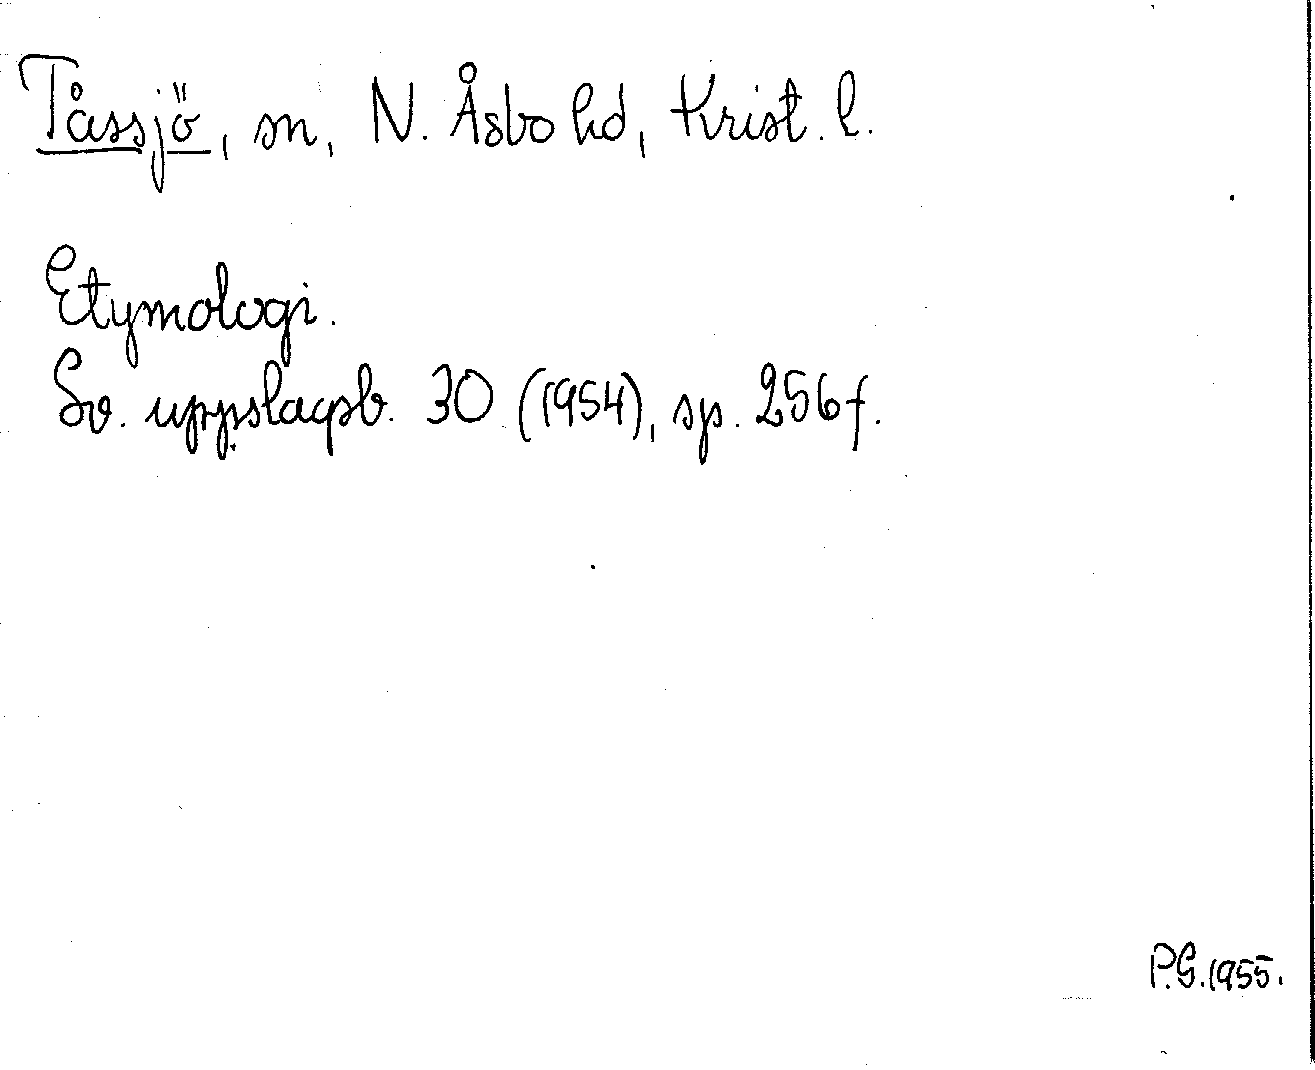 Tåssjö, sn, N. Åsbo hd, Krist. l.
Etymologi.
Sv. uppslagsb. 30 (1954), sp. 256 f.
P.G. 1955.